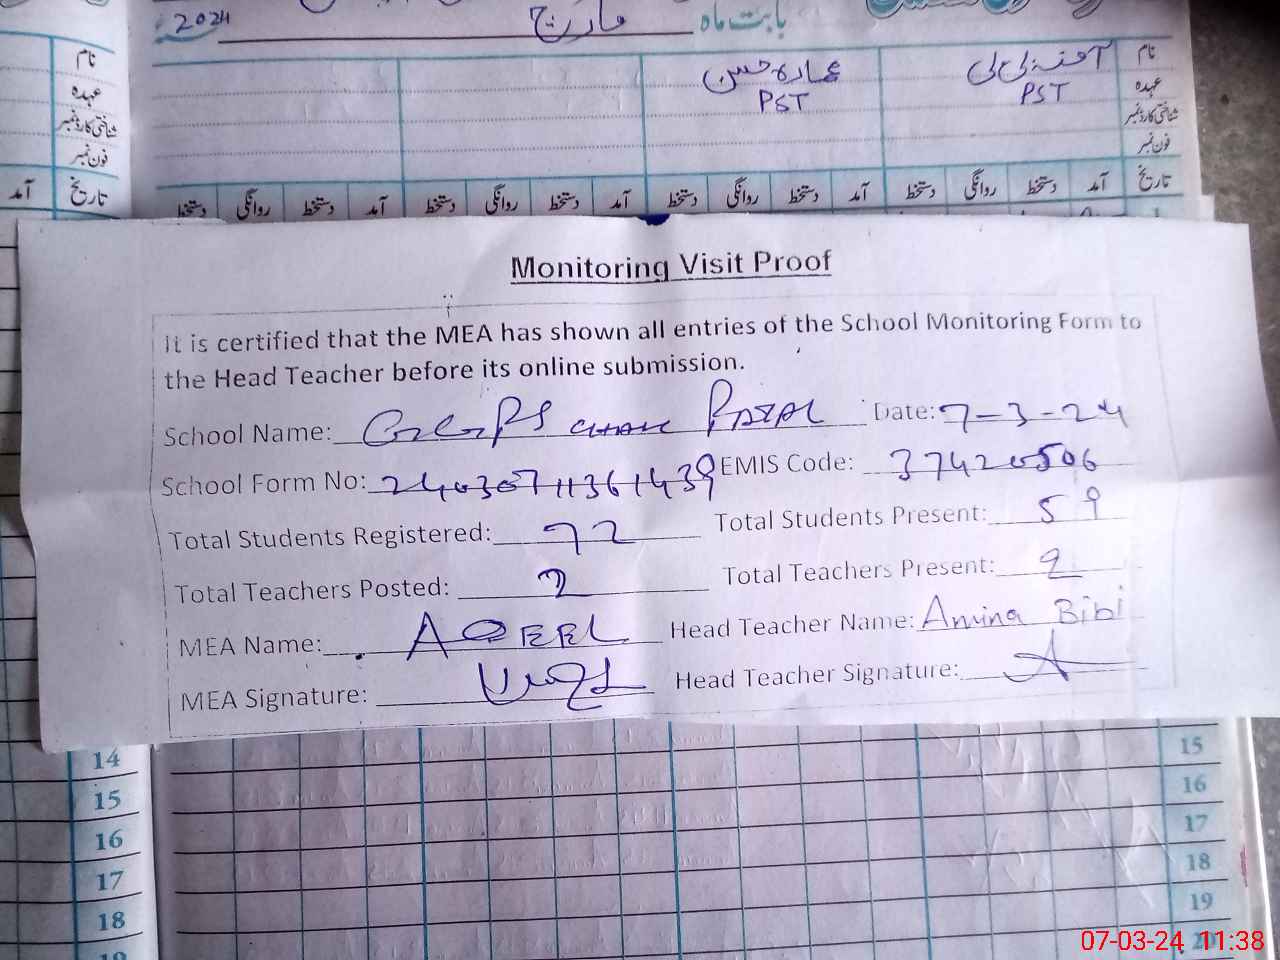 2024 بابت ماہ مارچ
نام آمنہ بی بی عمارہ حسن
عہدہ PST PST
شناختی کارڈ نمبر
فون نمبر
تاریخ آمد دستخط روانگی دستخط آمد دستخط روانگی دستخط آمد دستخط روانگی دستخط آمد دستخط روانگی دستخط
نام
عہدہ
شناختی کارڈ نمبر
فون نمبر
تاریخ آمد
Monitoring Visit Proof
It is certified that the MEA has shown all entries of the School Monitoring Form to
the Head Teacher before its online submission.
School Name: PS CHAK Date: 7-3-24
School Form No: 24030711361439 EMIS Code: 37420506
Total Students Registered: 72 Total Students Present: 59
Total Teachers Posted: 2 Total Teachers Present: 2
MEA Name: AQEEL Head Teacher Name: Amina Bibi
MEA Signature: Head Teacher Signature:
14 15
15 16
16 17
17 18
18 19
19 20
07-03-24 11:38